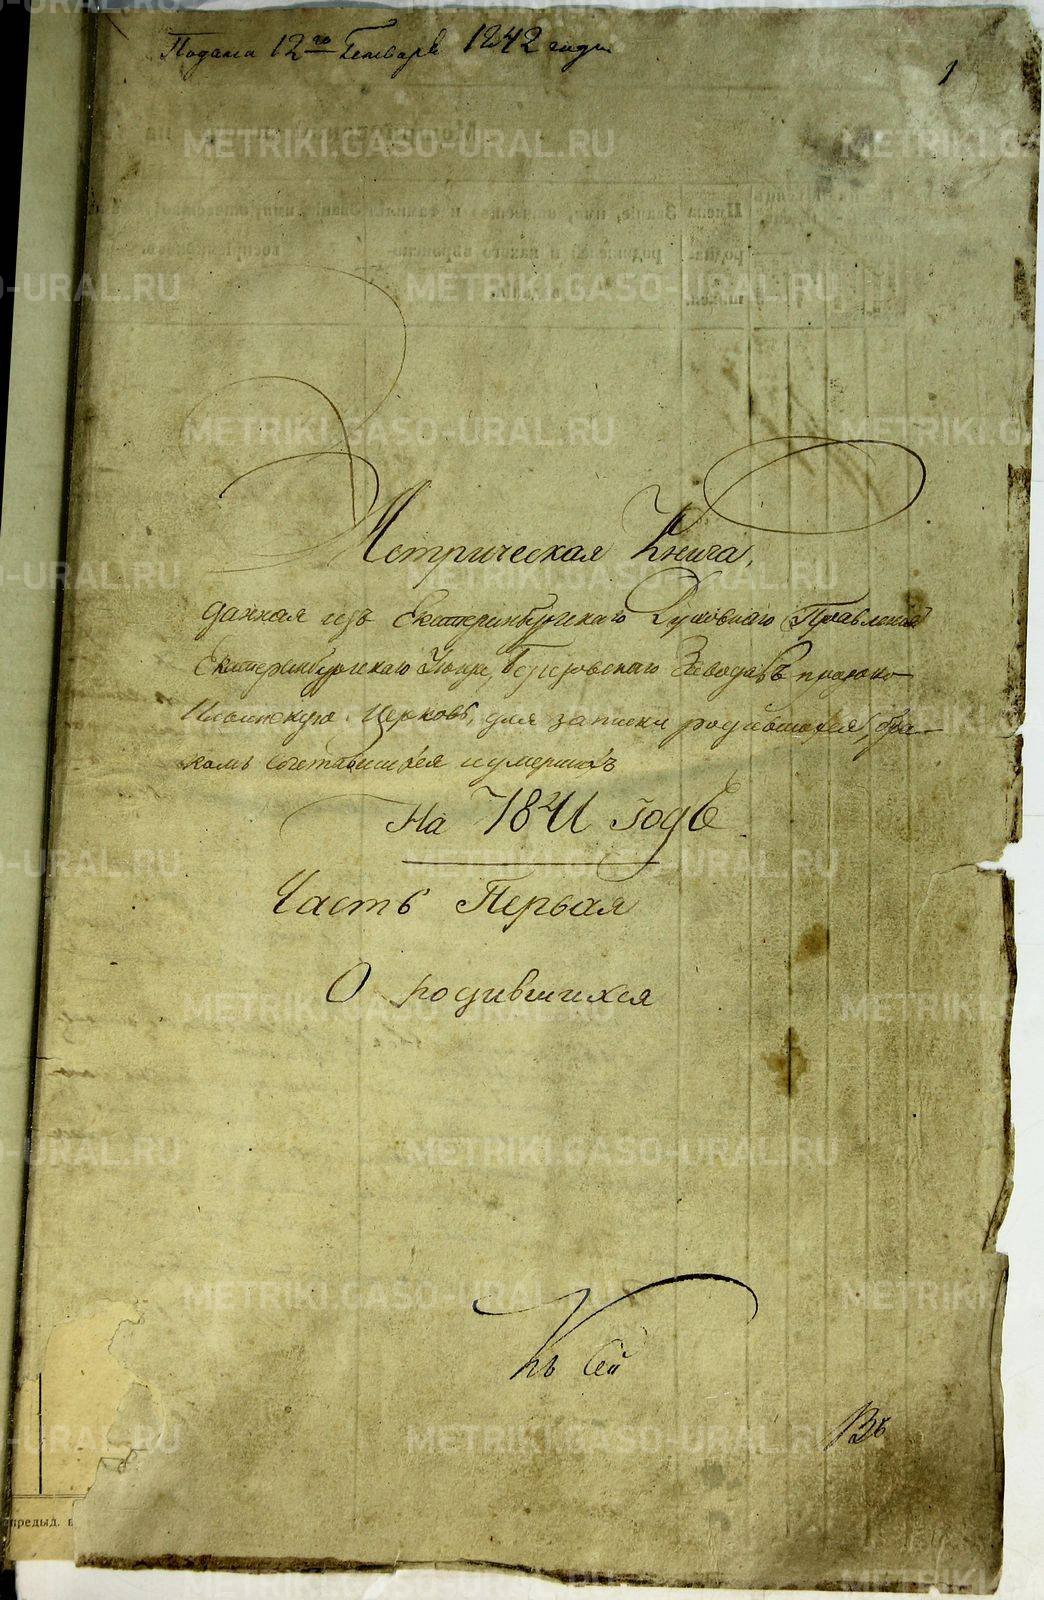 Подана 12го Генваря 1842 года
1
Метрическая Книга,
данная изъ Екатеринбургскаго Духовнаго Правленія
Екатеринбургскаго Уѣзда, Березовскаго Завода въ пророко
Ильинскую Церковь, для записки родившихся, бра-
комъ сочетавшихся и умершихъ
На 1841 годъ
Часть Первая
О родившихся
Къ сей
Въ
предыд. в
METRIKI.GASO-URAL.RU